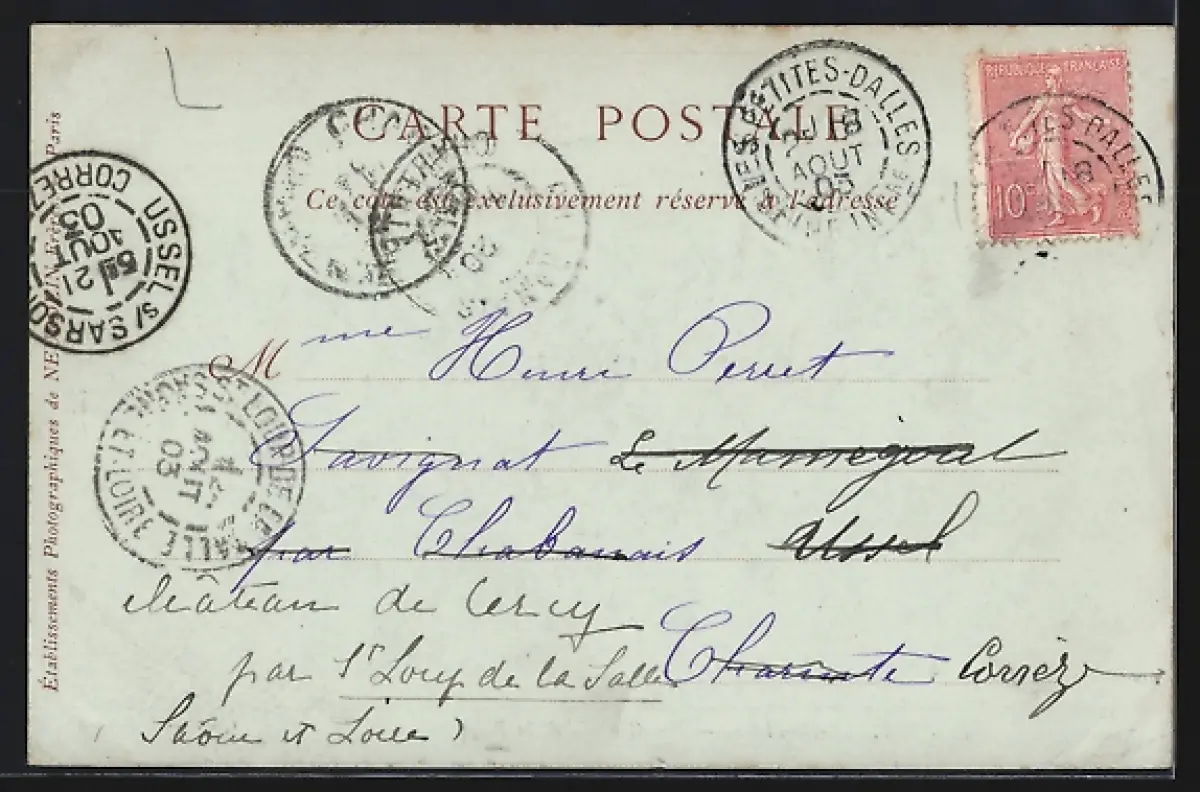 CARTE POSTALE
Ce côté est exclusivement réservé à l'adresse
RÉPUBLIQUE FRANÇAISE
10c
LES PETITES-DALLES
8
AOUT
SEINE INFRE
USSEL S/ SARSONNE
CORRÈZE
21
AOUT
03
ST LOUP DE LA SALLE
SAONE ET LOIRE
AOUT
03
Établissements Photographiques de
Paris
Mme Henri Perret
Savignat Le
par Chabanais Ussel
Château de Cercy
par St Loup de la Salle Charente Corrèze
(Saône et Loire)